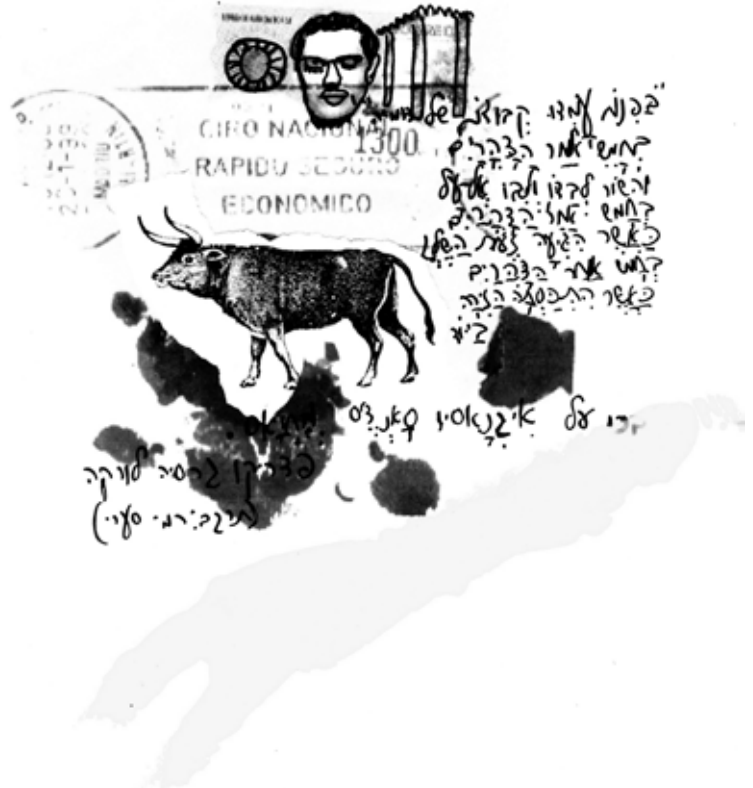 GIRO NACIONAL
1300
RAPIDO SEGURO
ECONOMICO
"בפנות עמדו קבוצות של
בחמש אחר הצהרים
והשור לבדו ולבו אל על
בחמש אחר הצהרים
כאשר הגיעה זעת השלג
בחמש אחר הצהרים
כאשר התכסתה הזירה
ביוד
על איגנאסיו סאנצ'ס
פדריקו גרסיה לורקה
(תרגב: רמי סערי)